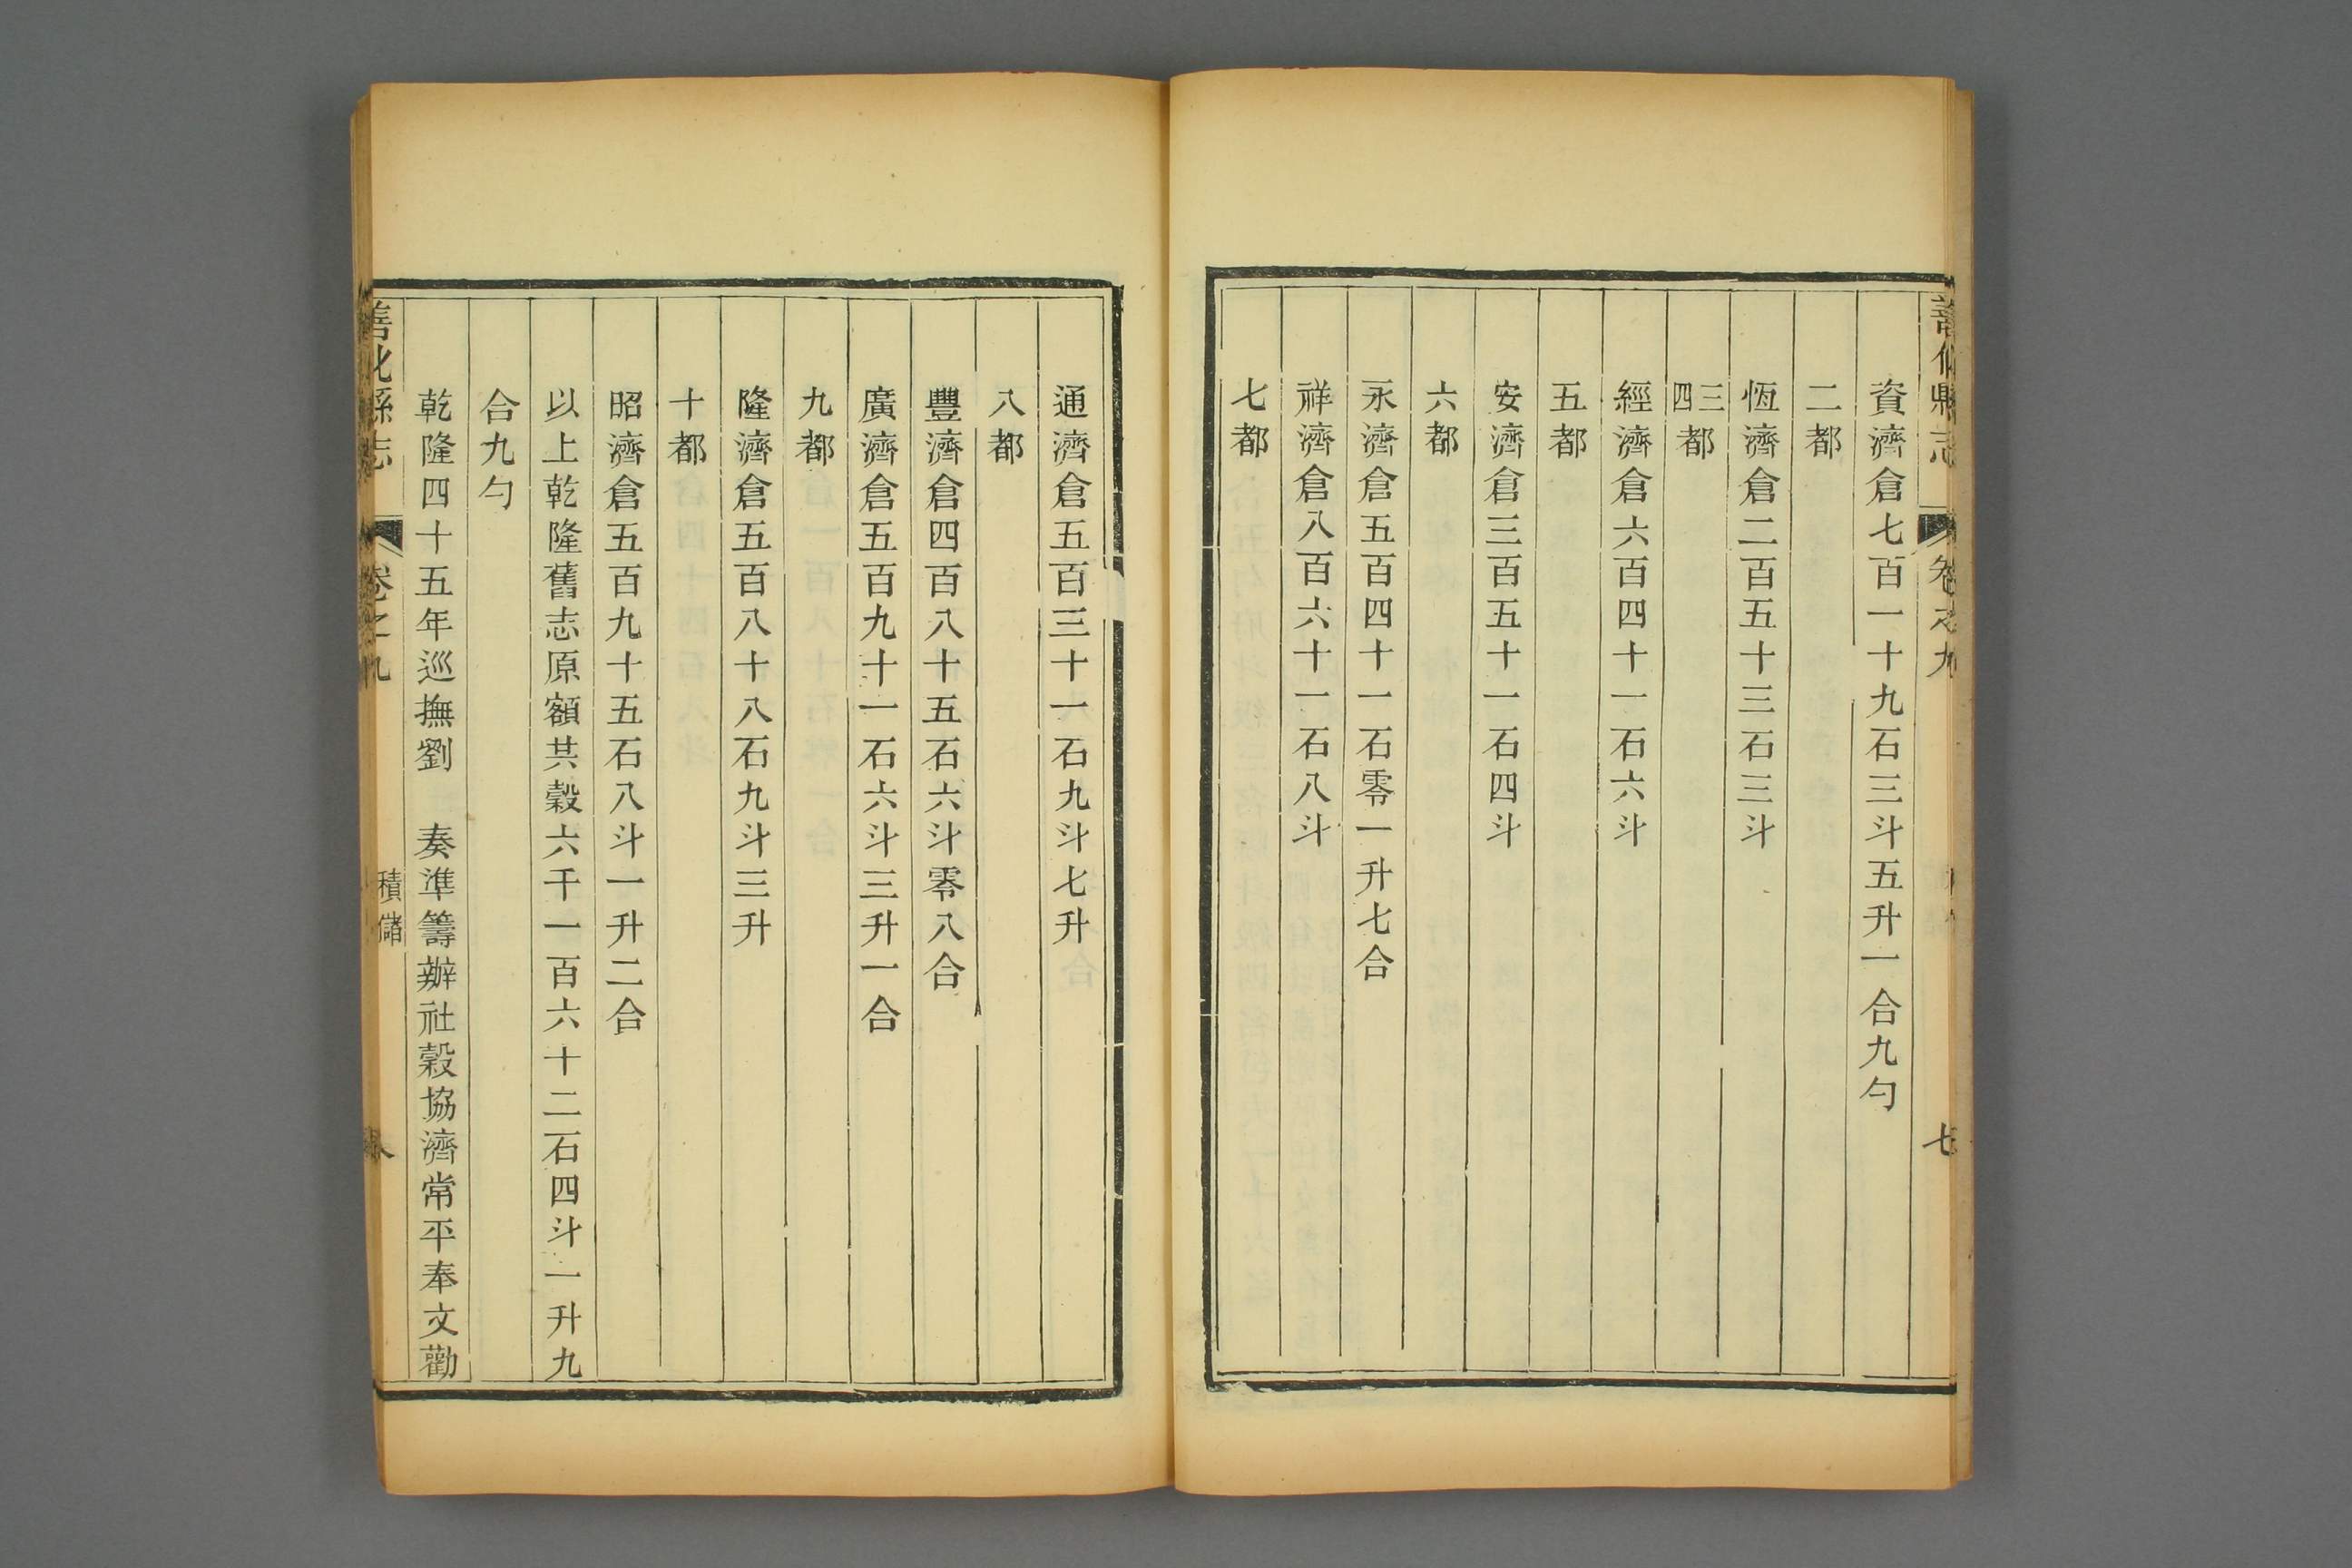 善化縣志
卷之九
七
資濟倉七百一十九石三斗五升一合九勺
二都
恆濟倉二百五十三石三斗
三四都
經濟倉六百四十一石六斗
五都
安濟倉三百五十一石四斗
六都
永濟倉五百四十一石零一升七合
祥濟倉八百六十一石八斗
七都
通濟倉五百三十一石九斗七升
八都
豐濟倉四百八十五石六斗零八合
廣濟倉五百九十一石六斗三升一合
九都
隆濟倉五百八十八石九斗三升
十都
昭濟倉五百九十五石八斗一升二合
以上乾隆舊志原額共穀六千一百六十二石四斗一升九
合九勺
乾隆四十五年巡撫劉 奏準籌辦社穀協濟常平奉文勸
善化縣志
卷之九
積儲
八